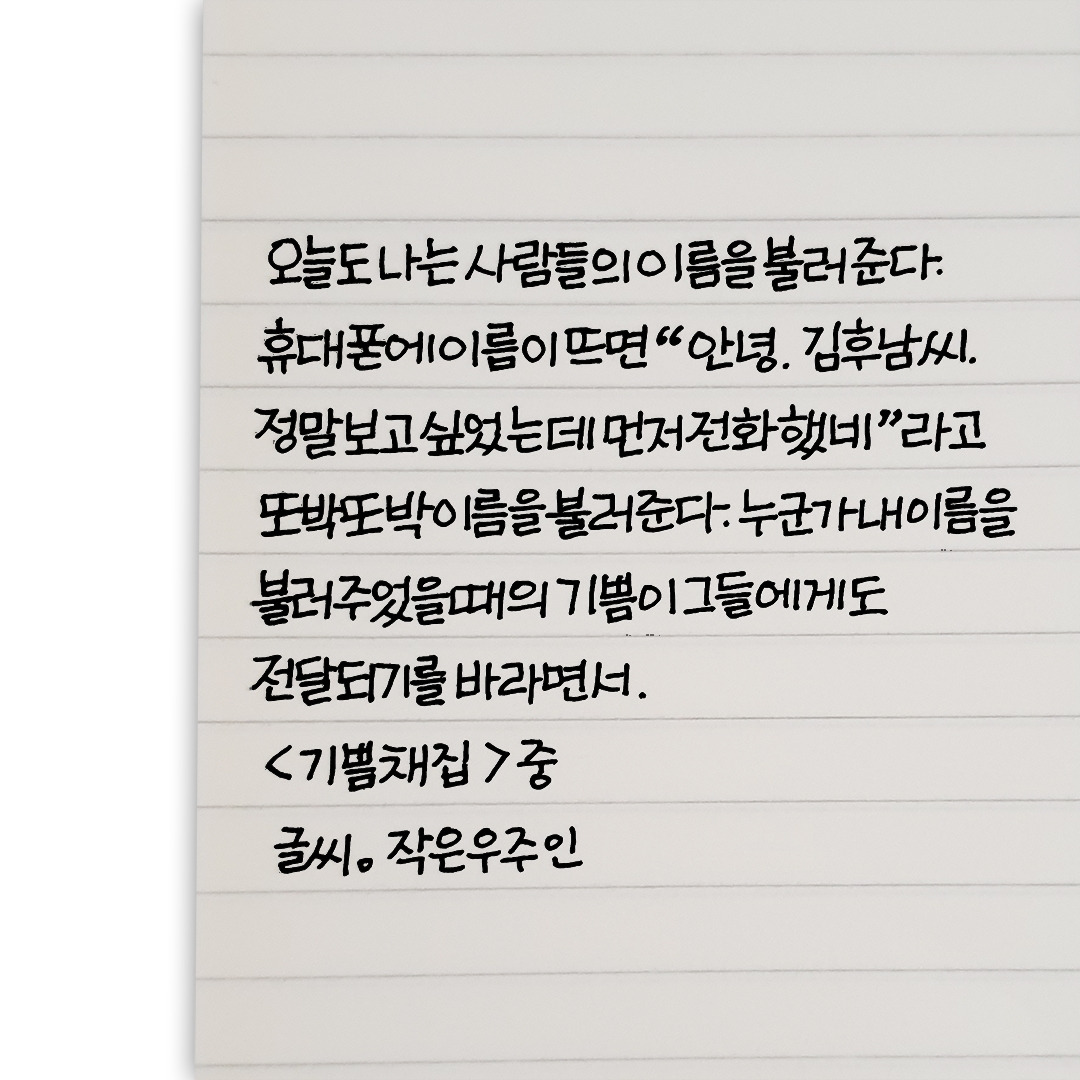 오늘도 나는 사람들의 이름을 불러 준다.
휴대폰에 이름이 뜨면 “안녕. 김후남씨.
정말 보고 싶었는데 먼저 전화했네”라고
또박또박 이름을 불러준다. 누군가 내 이름을
불러주었을 때의 기쁨이 그들에게도
전달되기를 바라면서.
<기쁨채집>중
글씨。작은우주인